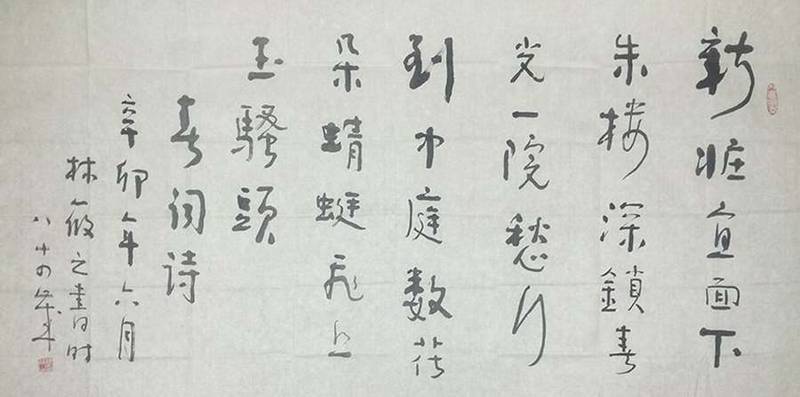 新妝宜面下
朱楼深鎖春
光一院愁行
到中庭数花
朵蜻蜓飛上
玉騷頭
春词诗
辛卯年六月
林筱之書时
八十四歲